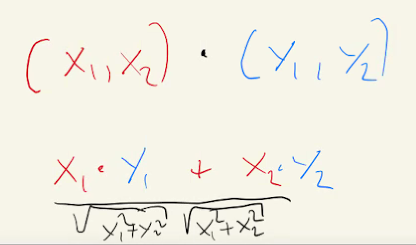 (x₁, x₂) · (y₁, y₂)
x₁ · y₁ + x₂ · y₂
√(x₁²+x₂²) √(x₁²+x₂²)